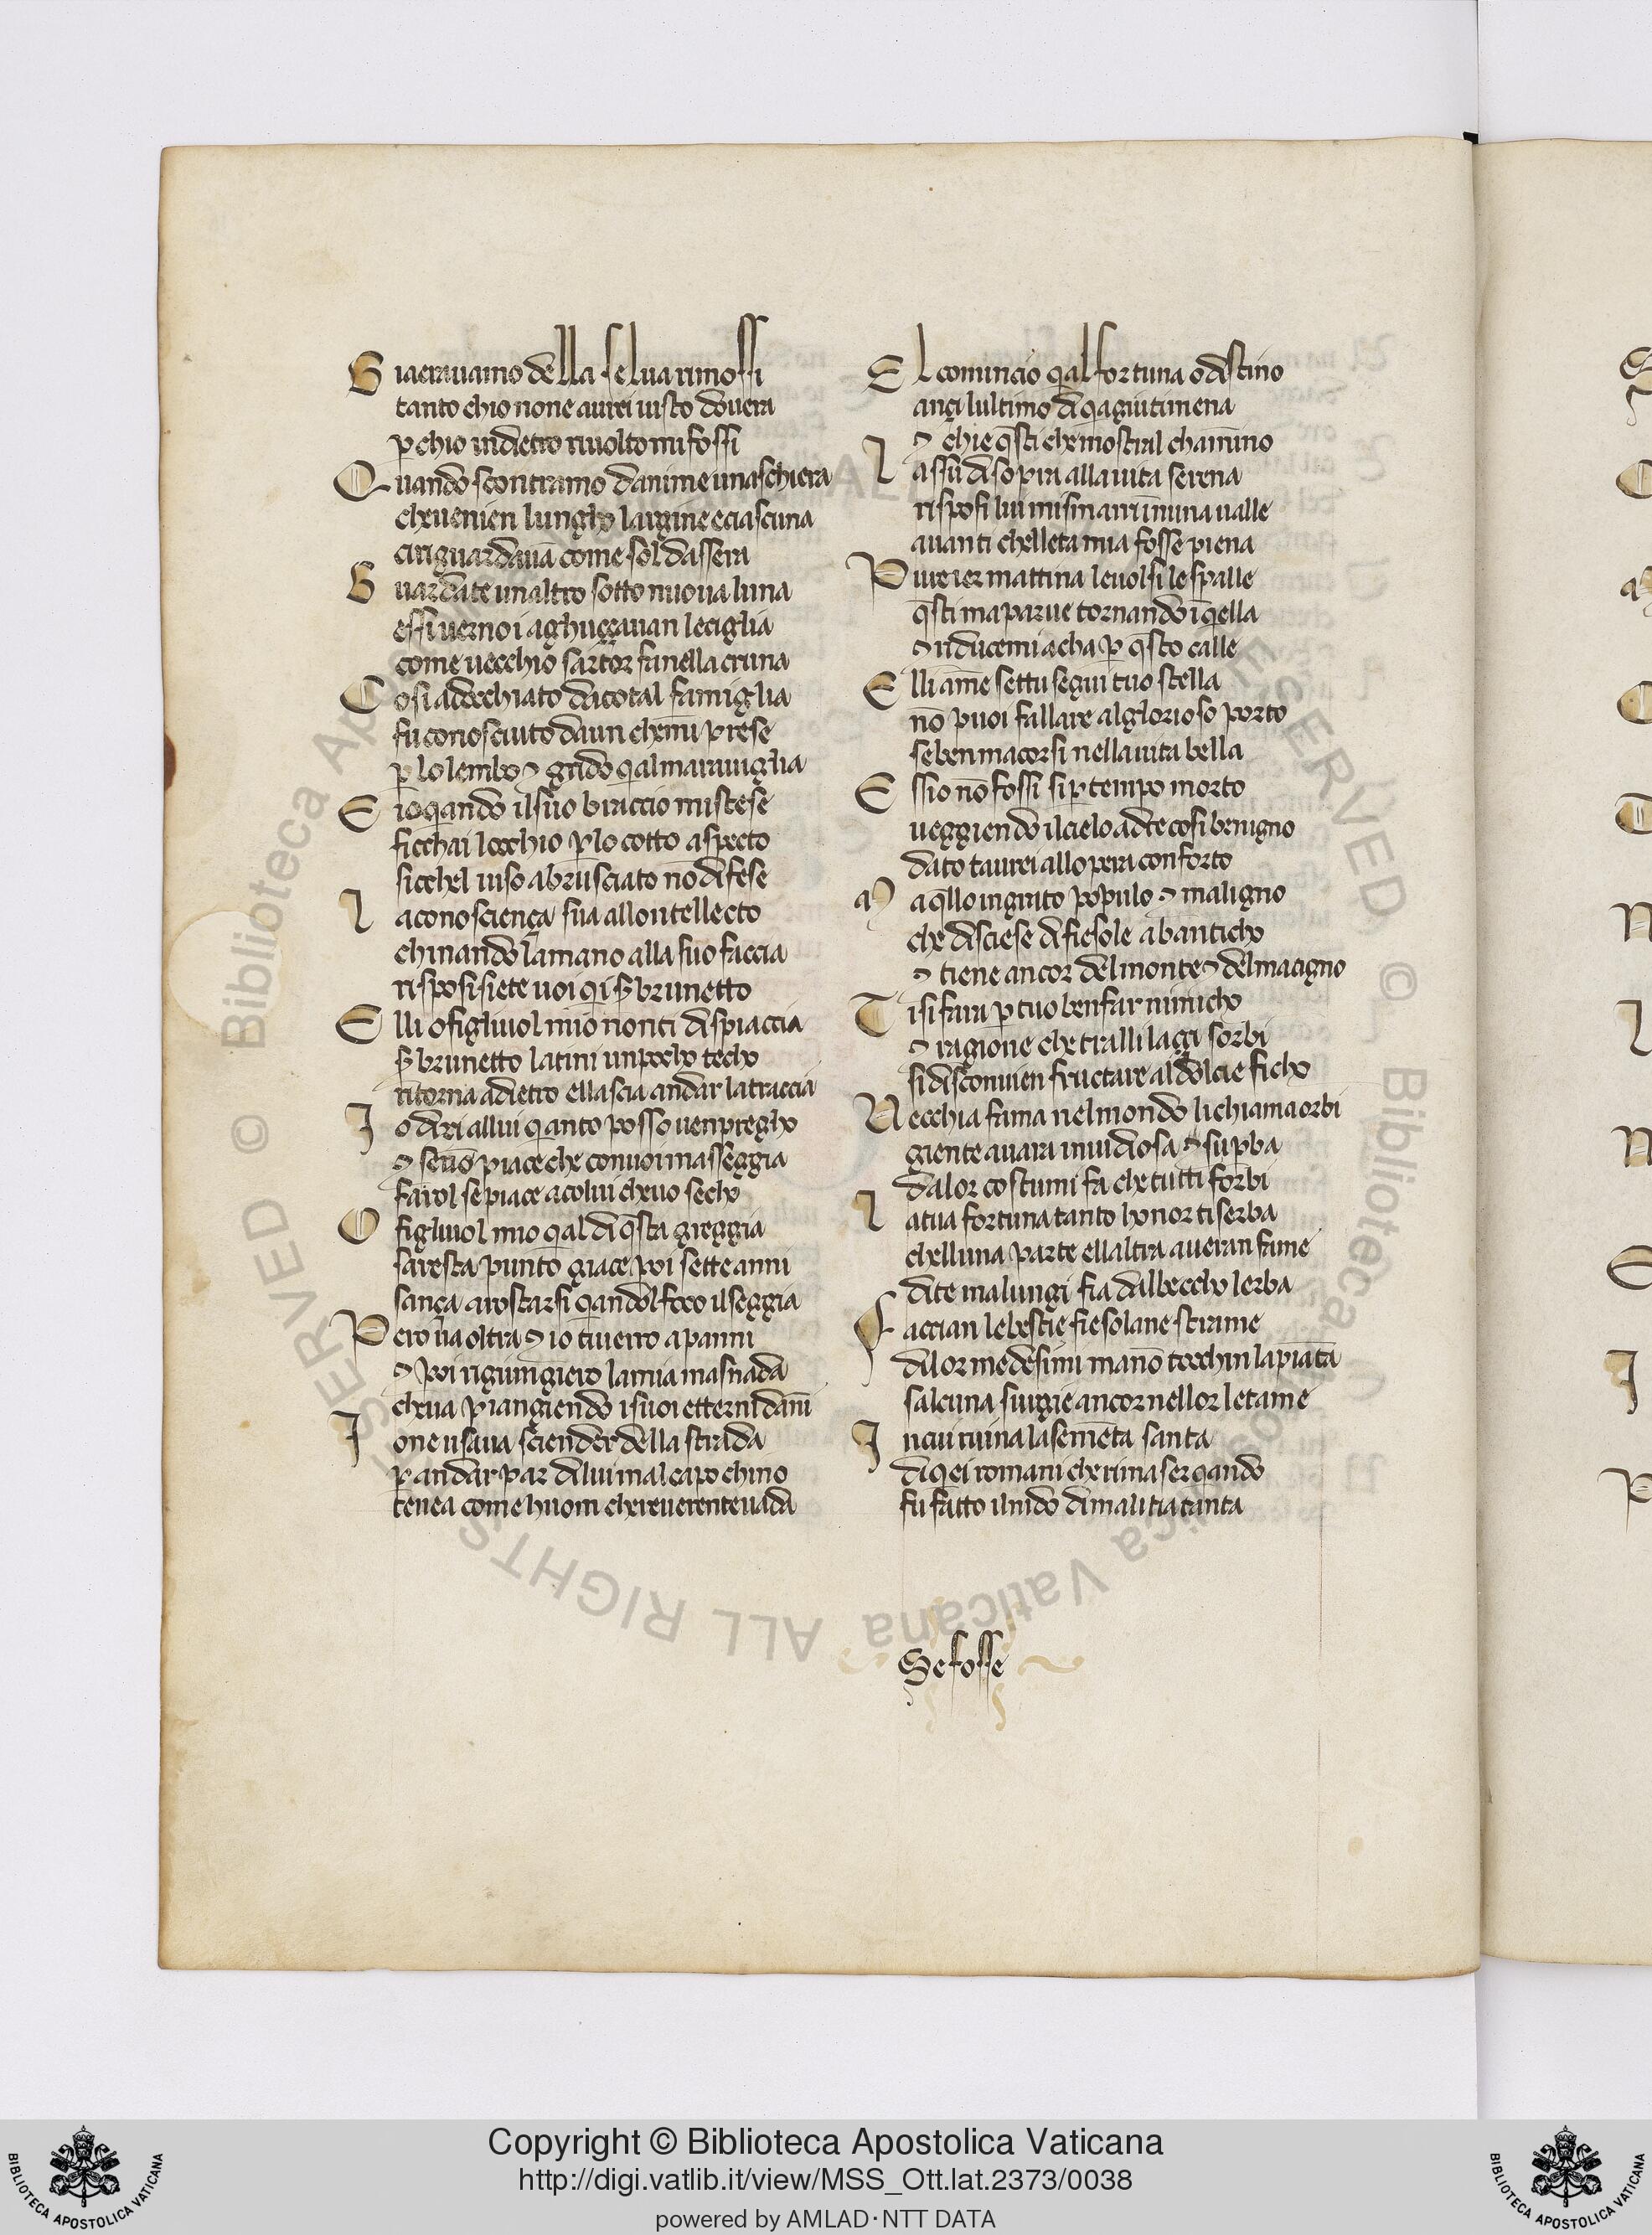 Giaeravamo della selva rimossi
tanto chio none avrei visto dovera
p̱ chio indietro rivolto mi fossi
Quando scontramo danime una schiera
che venien lungho largine e ciascuna
ci riguardavā come sol dassera
Guardate unaltro sotto nuova luna
essi verno i aghuççavan le ciglia
come vecchio sartor fa nella cruna
Cosi adocchiato da cotal famiglia
fu conosciuto da un che mi prese
p̱ lo lembo ⁊ grido qal maraviglia
E io qando il suo braccio mi stese
ficchai locchio p̱ lo cotto aspecto
sicchel viso abrusciato nō difese
La conosciença sua allo ntellecto
chinando la mano alla suo faccia
risposi siete voi qi s̄ brunetto
Elli o figliuol mio non ti dispiaccia
s̄ brunetto latini un pocho techo
ritorna adietro ellascia andar la traccia
Io diri allui qanto posso ven pregho
⁊ se vō piace che con voi masseggia
farol se piace a colui che vo secho
O figliuol mio qal di qsta greggia
saresta punto giace poi sette anni
sança arostarsi qandol foco il seggia
Pero va oltra ⁊ io ti verro a panni
⁊ poi rigiungiero la mia masnada
che va piangiendo i suoi etterni danni
Io ne usava sciender della strada
p̱ andar par di lui mal capo chino
tenea come huom che reverente vada
El comincio qal fortuna o destino
ançi lultimo di qagiu ti mena
⁊ chi e qsti che mostral chamino
Lassu di sopra alla vita serena
risposi lui mi smarri in una valle
avanti chelleta mia fosse piena
Pure ier mattina le volsi le spalle
qsti maparve tornando ī qella
⁊ riducemi a cha p̱ qsto calle
Elli a me settu segui tuo stella
nō puoi fallare al glorioso porto
se ben macorsi nella vita bella
Essio nō fossi si p̱ tempo morto
veggiendo il cielo a dte cosi benigno
dato tavrei allo pera conforto
Ma qllo ingrato populo ⁊ maligno
che disciese di fiesole ab anticho
⁊ tiene ancor del monte ⁊ del macigno
Ti si fara p̱ tuo ben far nimicho
⁊ ragione che tralli laççi sorbi
si disconvien fructare al dolcie ficho
Vecchia fama nel mondo li chiama orbi
giente avara invidiosa ⁊ sup̱ba
da lor costumi fa che tutti forbi
La tua fortuna tanto honor ti serba
chelluna parte ellaltra averan fame
di te ma lungi fia dal beccho lerba
Faccian le bestie fiesolane strame
di lor medesimi ma nō tocchin la pianta
salcuna surgie ancor nel lor letame
In cui riviva la sementa santa
di qei romani che rimaser qando
fu fatto il nido di malitia tanta
Se fosse
Copyright © Biblioteca Apostolica Vaticana
http://digi.vatlib.it/view/MSS_Ott.lat.2373/0038
powered by AMLAD·NTT DATA